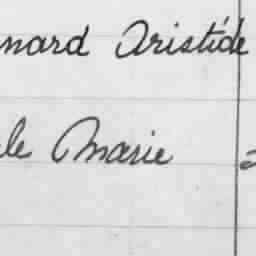 nard Aristide
le Marie